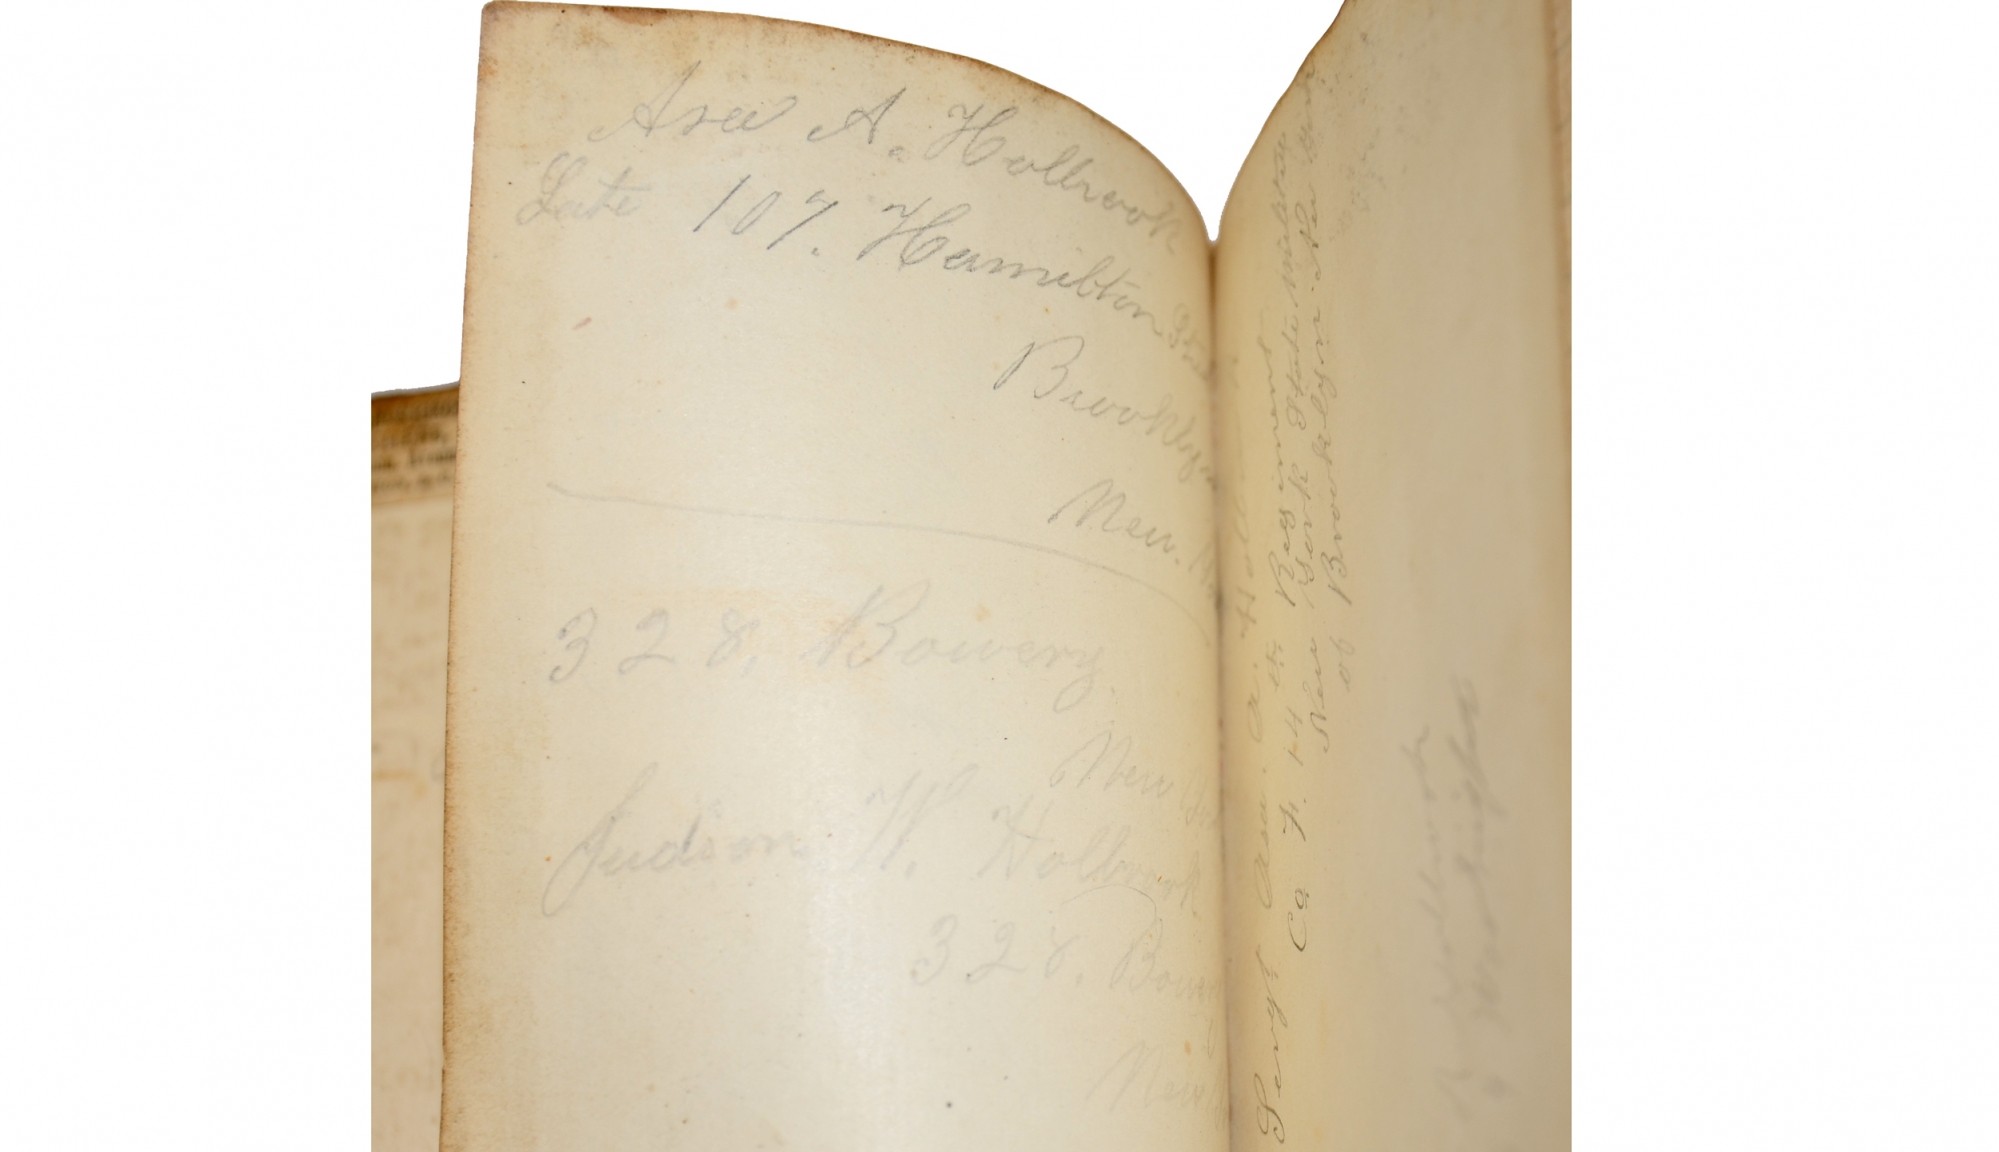 Asa A. Holbrook
Late 107. Hamilton
Brooklyn
New.
328, Bowery
New
Judson W. Holbrook
328. Bowery
New
Sergt Asa. A. Holbrook
Co F. 14 th Regiment
New York State Militia
of Brooklyn New York